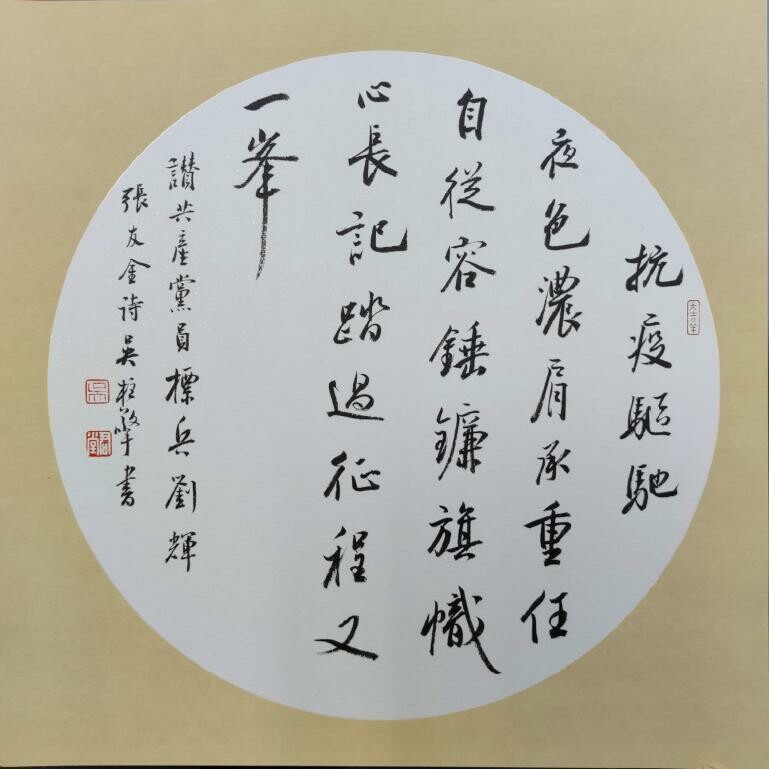 抗疫驅馳
夜色濃肩承重任
自從容錘鐮旗幟
心長記踏過征程又
一峯
讃共產黨員標兵劉輝
張友金诗吴柱擎书